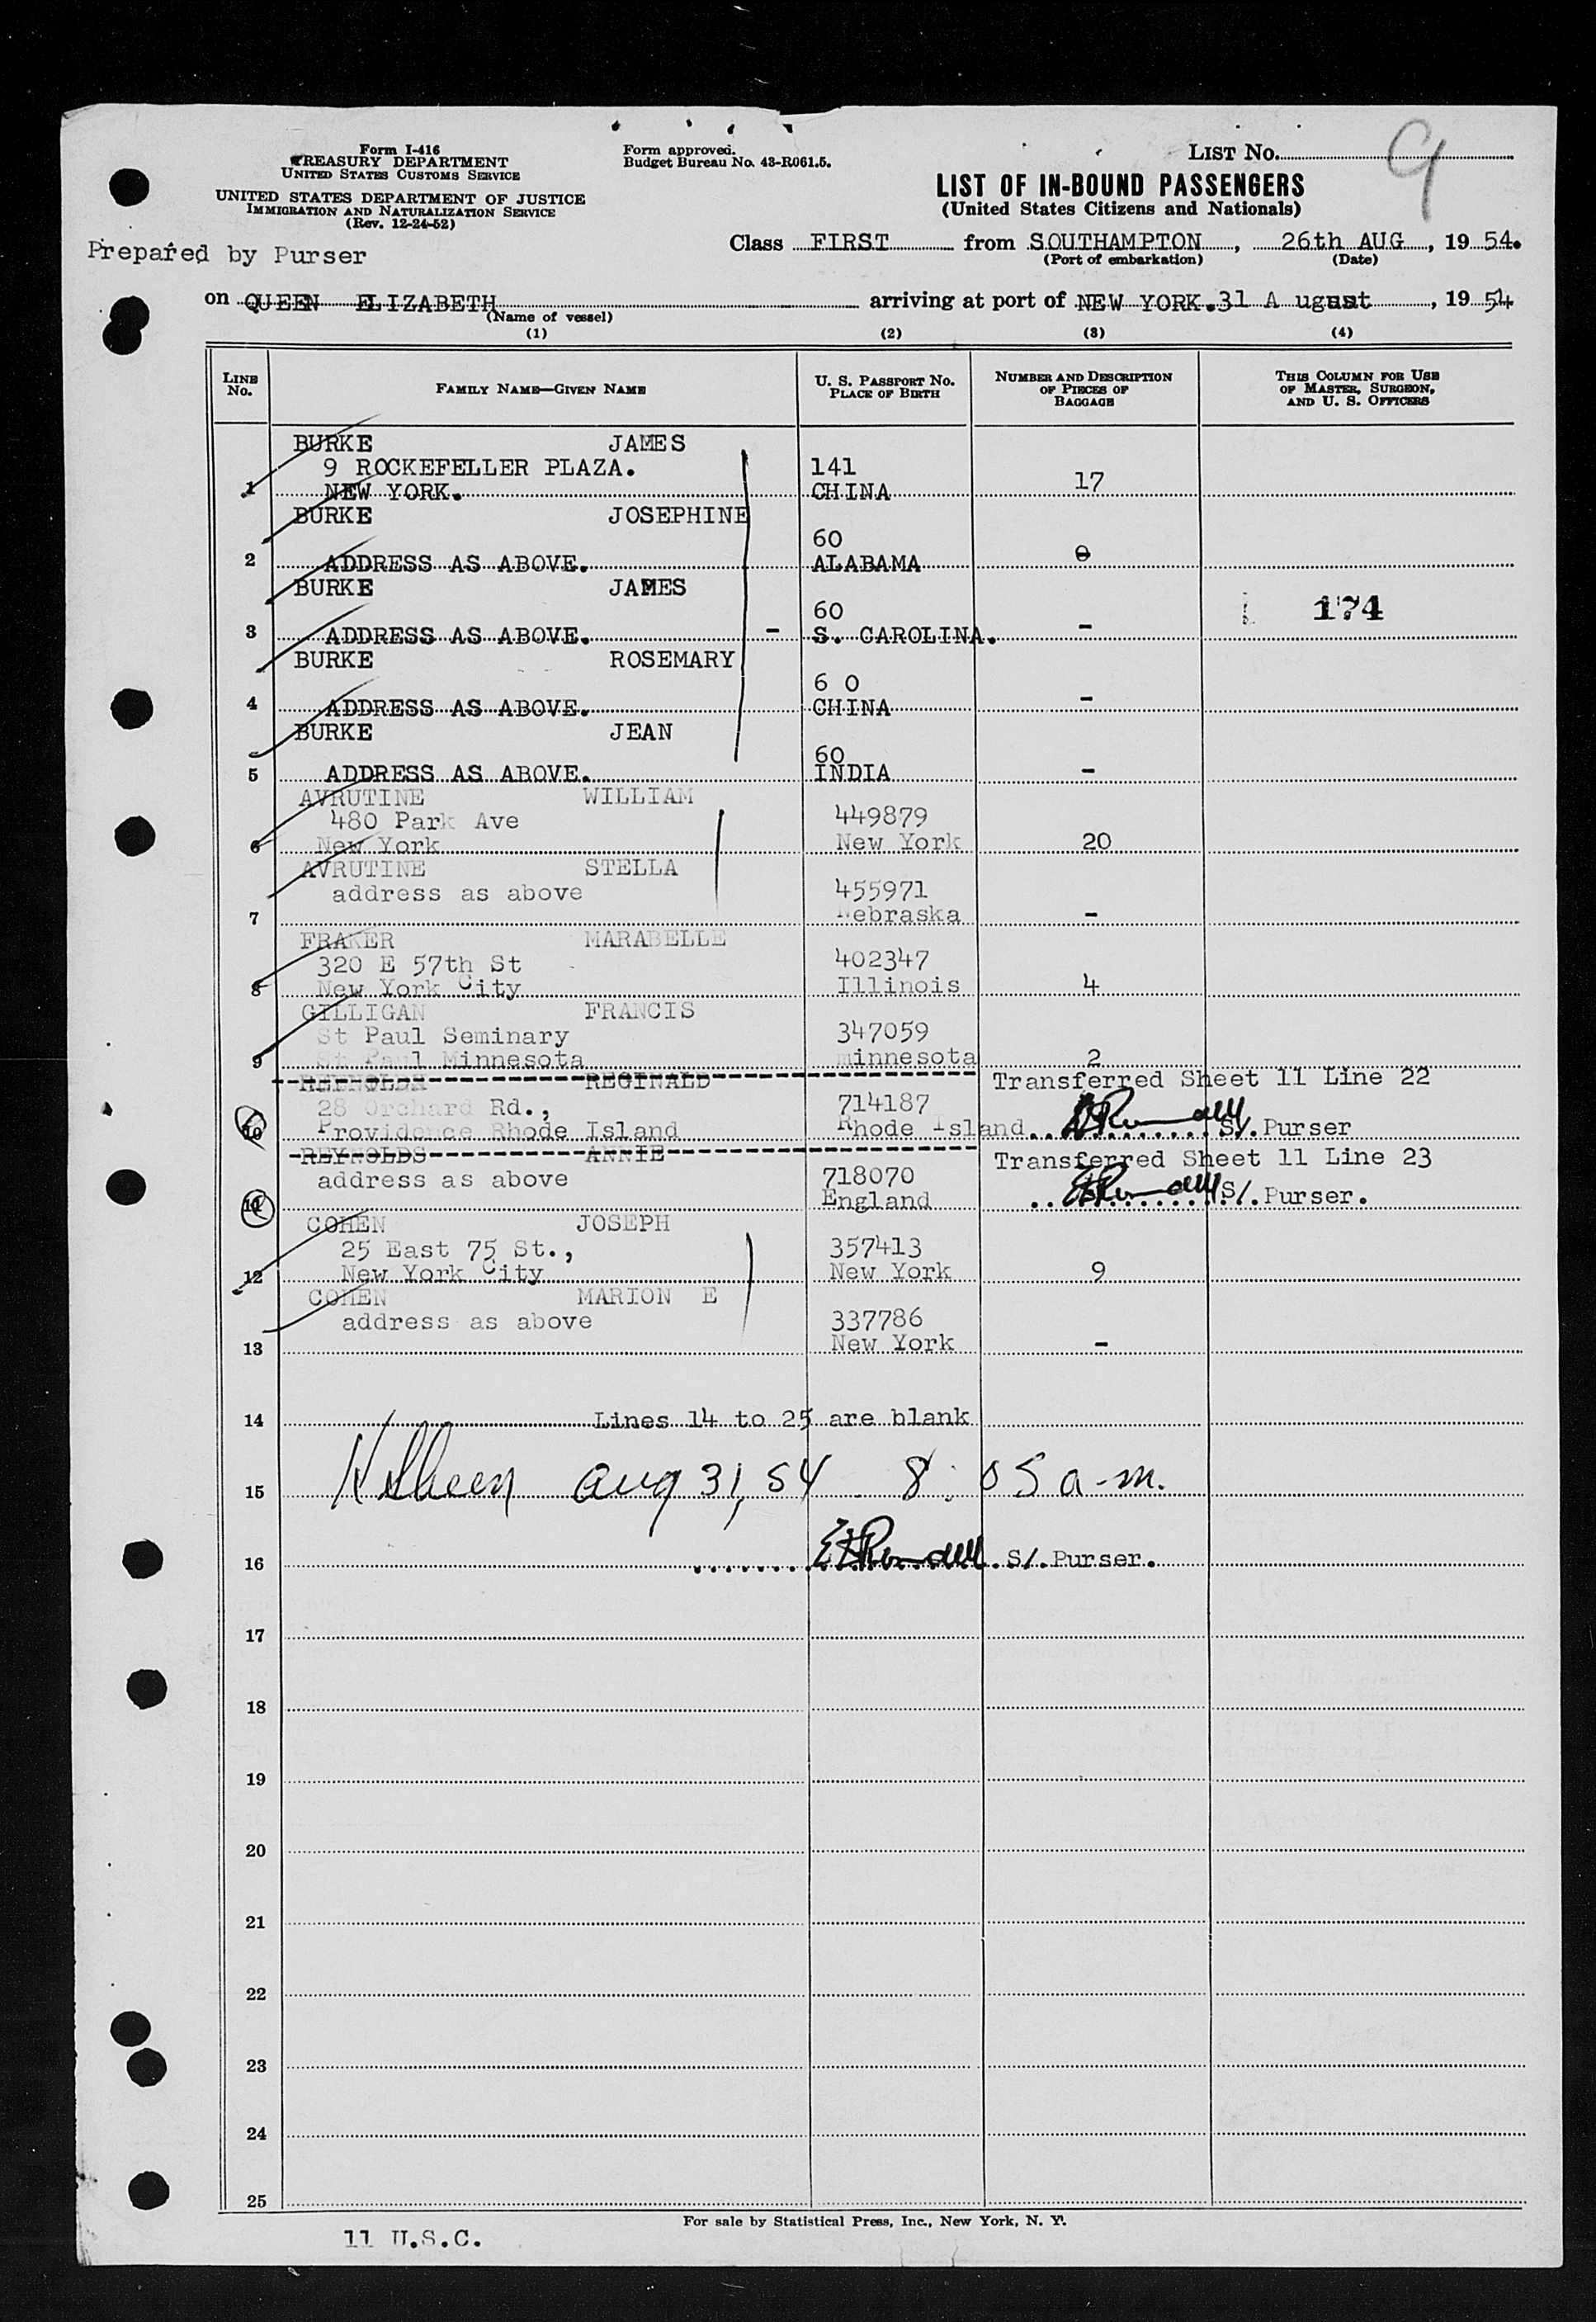 Form I-416
TREASURY DEPARTMENT
UNITED STATES CUSTOMS SERVICE
UNITED STATES DEPARTMENT OF JUSTICE
IMMIGRATION AND NATURALIZATION SERVICE
(Rev. 12-24-52)
Prepared by Purser
Form approved.
Budget Bureau No. 43-R061.5.
LIST NO. 9
LIST OF IN-BOUND PASSENGERS
(United States Citizens and Nationals)
Class FIRST from SOUTHAMPTON, 26th AUG, 19 54.
(Port of embarkation) (Date)
on QUEEN ELIZABETH arriving at port of NEW YORK. 31 A ugust, 19 54
(Name of vessel)
(1) (2) (3) (4)
LINE NO. FAMILY NAME—GIVEN NAME U. S. PASSPORT NO. PLACE OF BIRTH NUMBER AND DESCRIPTION OF PIECES OF BAGGAGE THIS COLUMN FOR USE OF MASTER, SURGEON, AND U. S. OFFICERS
BURKE JAMES
9 ROCKEFELLER PLAZA. 141
1 NEW YORK. CHINA 17
BURKE JOSEPHINE
60
2 ADDRESS AS ABOVE. ALABAMA 0
BURKE JAMES
60 174
3 ADDRESS AS ABOVE. - S. CAROLINA. -
BURKE ROSEMARY
6 0
4 ADDRESS AS ABOVE. CHINA -
BURKE JEAN
60
5 ADDRESS AS ABOVE. INDIA -
AVRUTINE WILLIAM
480 Park Ave 449879
6 New York New York 20
AVRUTINE STELLA
address as above 455971
7 Nebraska -
FRAKER MARABELLE
320 E 57th St 402347
8 New York City Illinois 4
GILLIGAN FRANCIS
St Paul Seminary 347059
9 St Paul Minnesota minnesota 2
REYNOLDH REGINALD Transferred Sheet 11 Line 22
28 Orchard Rd., 714187
10 Providence Rhode Island Rhode Island S/. Purser
REYNOLDS ANNIE Transferred Sheet 11 Line 23
address as above 718070
11 England S/. Purser.
COHEN JOSEPH
25 East 75 St., 357413
12 New York City New York 9
COHEN MARION E
address as above 337786
13 New York -
14 Lines 14 to 25 are blank
15 Aug 31, 54 8:05 a-m.
16 S/. Purser.
17
18
19
20
21
22
23
24
25
For sale by Statistical Press, Inc., New York, N. Y.
11 U.S.C.